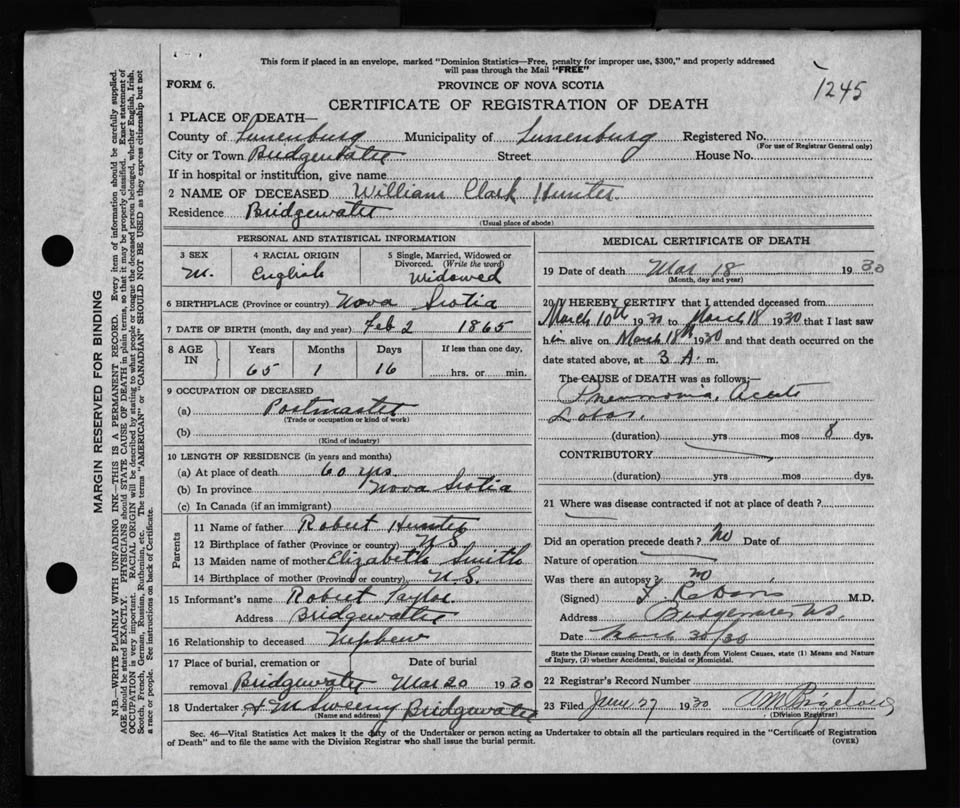 This form if placed in an envelope, marked "Dominion Statistics—Free, penalty for improper use, $300," and properly addressed
will pass through the Mail "FREE"
FORM 6.
PROVINCE OF NOVA SCOTIA
1245
CERTIFICATE OF REGISTRATION OF DEATH
1 PLACE OF DEATH—
County of Lunenburg Municipality of Lunenburg Registered No.
(For use of Registrar General only)
City or Town Bridgewater Street House No.
If in hospital or institution, give name
2 NAME OF DECEASED William Clark Hunter
Residence Bridgewater
(Usual place of abode)
PERSONAL AND STATISTICAL INFORMATION
3 SEX 4 RACIAL ORIGIN 5 Single, Married, Widowed or
Divorced. (Write the word)
M. English Widowed
6 BIRTHPLACE (Province or country) Nova Scotia
7 DATE OF BIRTH (month, day and year) Feb 2 1865
8 AGE IN Years Months Days If less than one day,
65 1 16 hrs. or min.
9 OCCUPATION OF DECEASED
(a) Postmaster
(Trade or occupation or kind of work)
(b)
(Kind of industry)
10 LENGTH OF RESIDENCE (in years and months)
(a) At place of death 60 yrs.
(b) In province Nova Scotia
(c) In Canada (if an immigrant)
Parents
11 Name of father Robert Hunter
12 Birthplace of father (Province or country) N S
13 Maiden name of mother Elizabeth Smith
14 Birthplace of mother (Province or country) N.S.
15 Informant's name Robert Taylor
Address Bridgewater
16 Relationship to deceased Nephew
17 Place of burial, cremation or Date of burial
removal Bridgewater Mar 20 1930
18 Undertaker Sweeny Bridgewater
(Name and address)
MEDICAL CERTIFICATE OF DEATH
19 Date of death Mar 18 1930
(Month, day and year)
20 I HEREBY CERTIFY that I attended deceased from
March 10th 1930 to March 18 1930 that I last saw
him alive on March 18th 1930 and that death occurred on the
date stated above, at 3 A. m.
The CAUSE of DEATH was as follows:—
Pneumonia, Acute
Lobar.
(duration) yrs mos 8 dys.
CONTRIBUTORY
(duration) yrs mos dys.
21 Where was disease contracted if not at place of death?
Did an operation precede death? No Date of
Nature of operation
Was there an autopsy? no
(Signed) Davis M.D.
Address Bridgewater, N.S.
Date March 30/30
State the Disease causing Death, or in death from Violent Causes, state (1) Means and Nature
of Injury, (2) whether Accidental, Suicidal or Homicidal.
22 Registrar's Record Number
23 Filed June 27 1930
(Division Registrar)
Sec. 46—Vital Statistics Act makes it the duty of the Undertaker or person acting as Undertaker to obtain all the particulars required in the "Certificate of Registration
of Death" and to file the same with the Division Registrar who shall issue the burial permit.
(OVER)
MARGIN RESERVED FOR BINDING
N.B.—WRITE PLAINLY WITH UNFADING INK—THIS IS A PERMANENT RECORD. Every item of information should be carefully supplied.
AGE should be stated EXACTLY. PHYSICIANS should STATE CAUSE OF DEATH in plain terms, so that it may be properly classified. Exact statement of
OCCUPATION is very important. RACIAL ORIGIN will be described by stating to what people or tongue the deceased person belonged, whether English, Irish,
Scotch, French, German, Russian, Ruthenian, etc. The terms "AMERICAN" or "CANADIAN" SHOULD NOT BE USED as they express citizenship but not
a race or people. See instructions on back of Certificate.